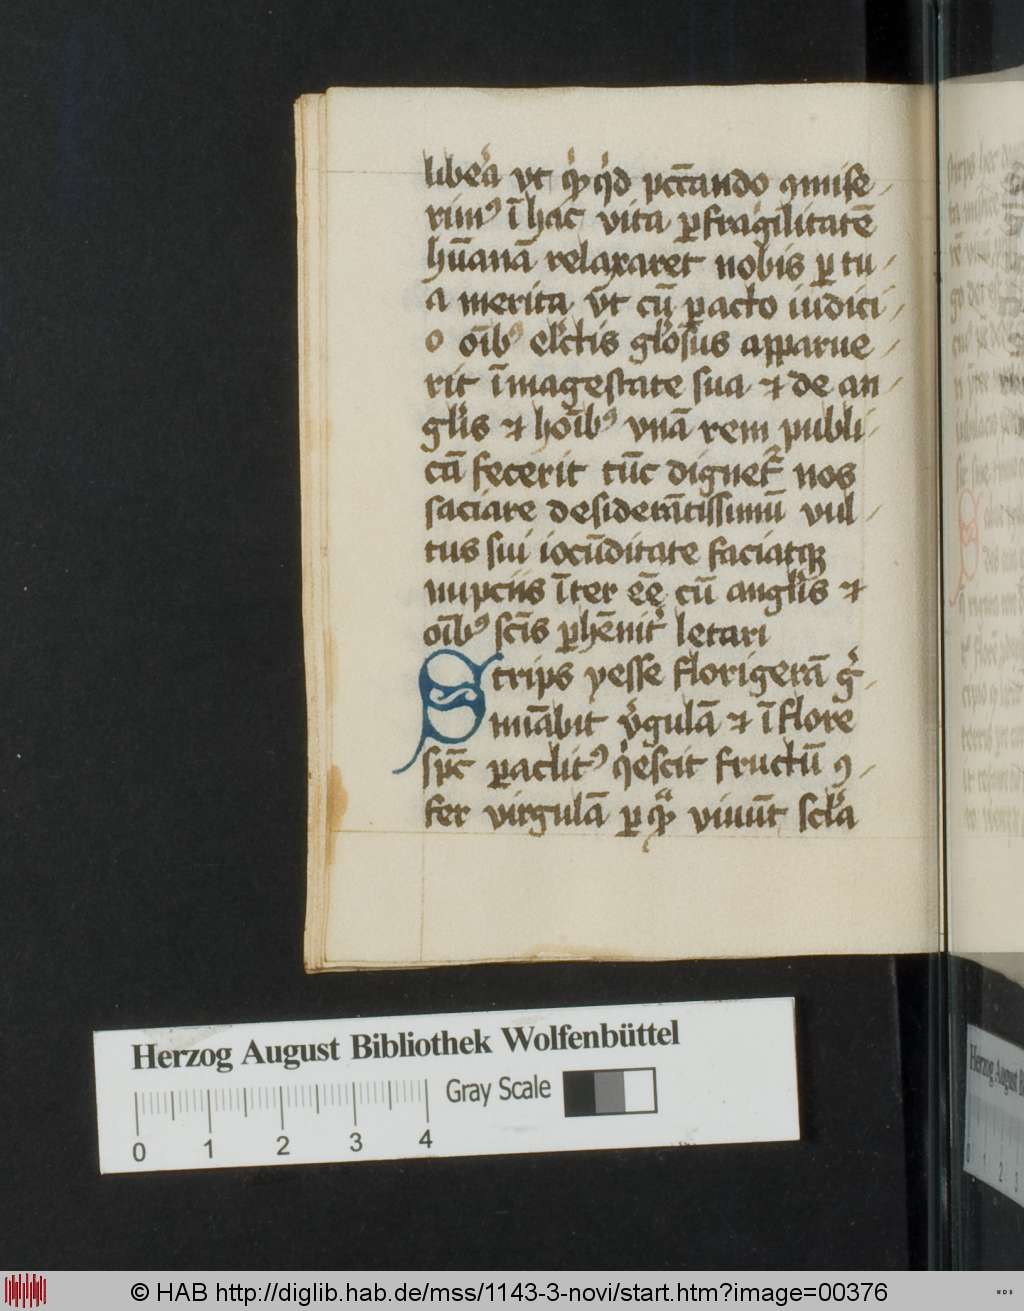 libeͣa vt qͥcqͥd pct̄ando ꝯmiſe-
rimꝰ ī hac vita ꝑ fragilitatē
hūanā relaxaret nobis ꝑ tu-
a merita vt cū ꝑacto iudici-
o oībꝰ elc̄tis glōſus apparue-
rit ī mageſtate ſua ⁊ de an-
gl̄is ⁊ hoībꝰ vnā rem publi-
cā fecerit tūc dignet᷑ nos
ſaciare deſiderātiſſimū vul-
tus ſui iocūditate faciatqꝫ
nupciis īter eē cū angl̄is ⁊
oībꝰ ſcīs ꝑhēnit᷑ letari
Strips yeſſe florigerā gͥ-
minābit vͥgulā ⁊ ī flore
ſpc̄ paclitꝰ qͥeſcit fructū ꝯ-
fer virgulā ꝑ quā viuūt ſcl̄a
Herzog August Bibliothek Wolfenbüttel
Gray Scale
0 1 2 3 4
© HAB http://diglib.hab.de/mss/1143-3-novi/start.htm?image=00376